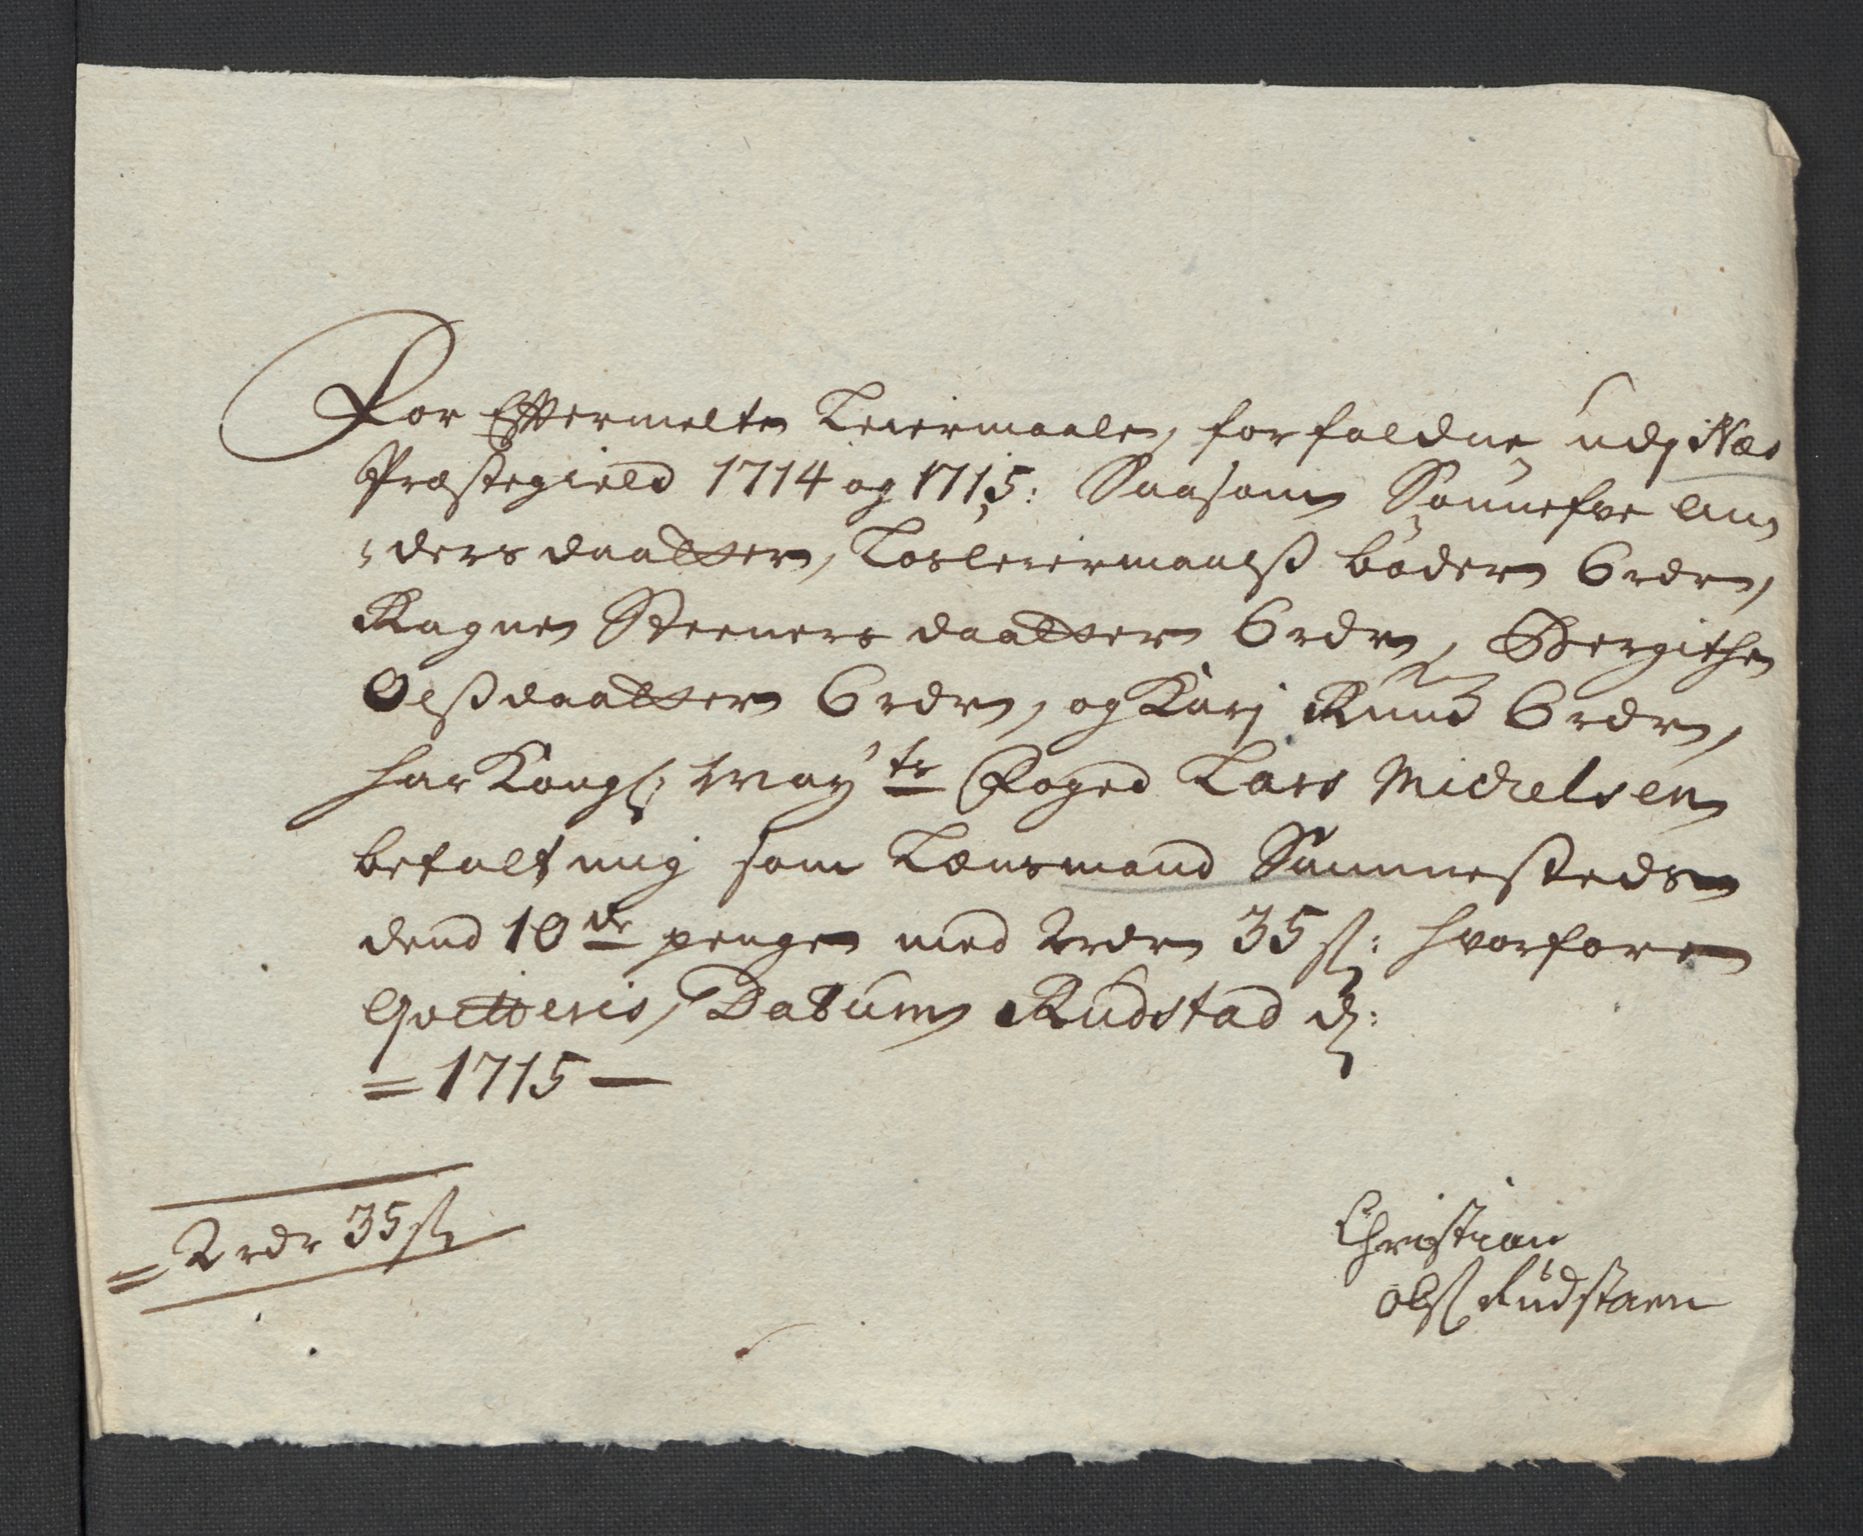 For Effermelte Leiermaale, forfaldne udj Næs
Præstegield 1714 og 1715: Saasom Sønnefve An
dersdaatter, Løsleiermaalß bøder 6 rdr,
Ragne Steenersdaatter 6 rdr, Bergithe
Olßdaatter 6 rdr, og Karj Ruud 6 rdr,
har Kongl: May:ts Foged Lars Michelsen
betalt mig som Lænsmand Sammesteds
dend 10de penge med 2 rdr 35 ß: hvorfore
Qvitteris, Datum Rudstad d:
= 1715 —
= 2 rdr 35 ß
Christian
olß Rudstaen